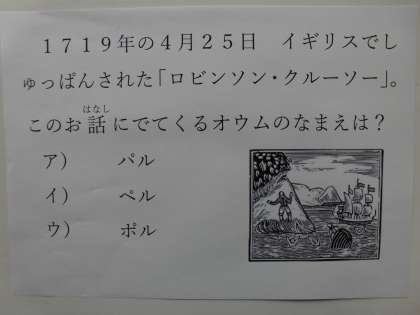 1719年の4月25日　イギリスでし
ゅっぱんされた「ロビンソン・クルーソー」。
はなし
このお話にでてくるオウムのなまえは？
ア）　パル
イ）　ペル
ウ）　ポル